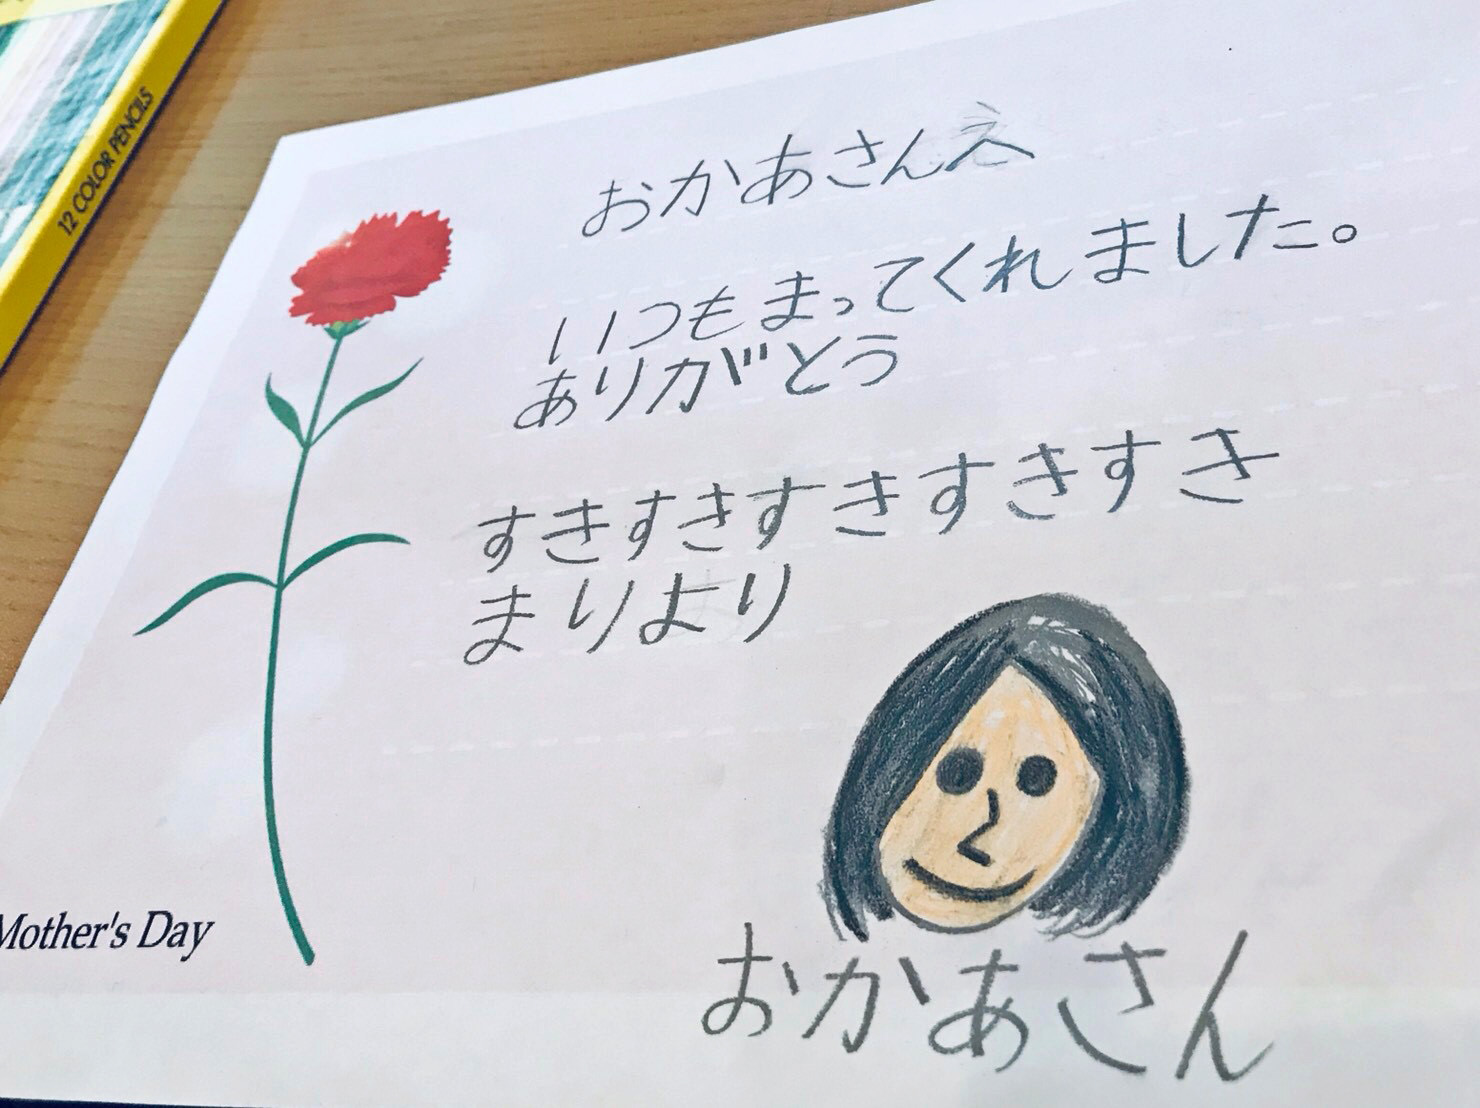 12 COLOR PENCILS
おかあさんえ
いつもまってくれました。
ありがとう
すきすきすきすきすき
まりより
おかあさん
Mother's Day